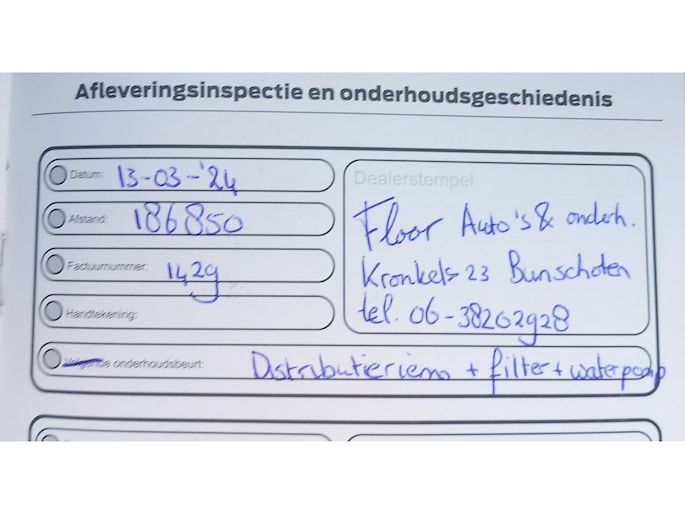 Afleveringsinspectie en onderhoudsgeschiedenis
Datum: 13-03-'24
Afstand: 186850
Factuurnummer: 1429
Handtekening:
Dealerstempel
Floor Auto's & onderh.
Kronkels 23 Bunschoten
tel. 06-38202928
Volgende onderhoudsbeurt: Distributieriem + filter + waterpomp